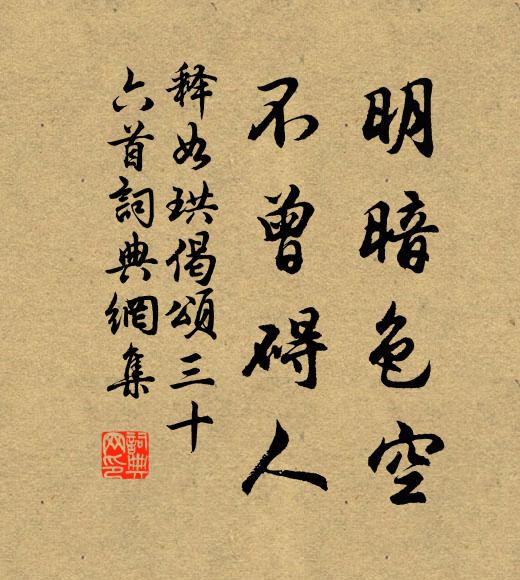 明暗色空
不曾碍人
释如珙偈颂三十
六首詞典網集
詞典网印